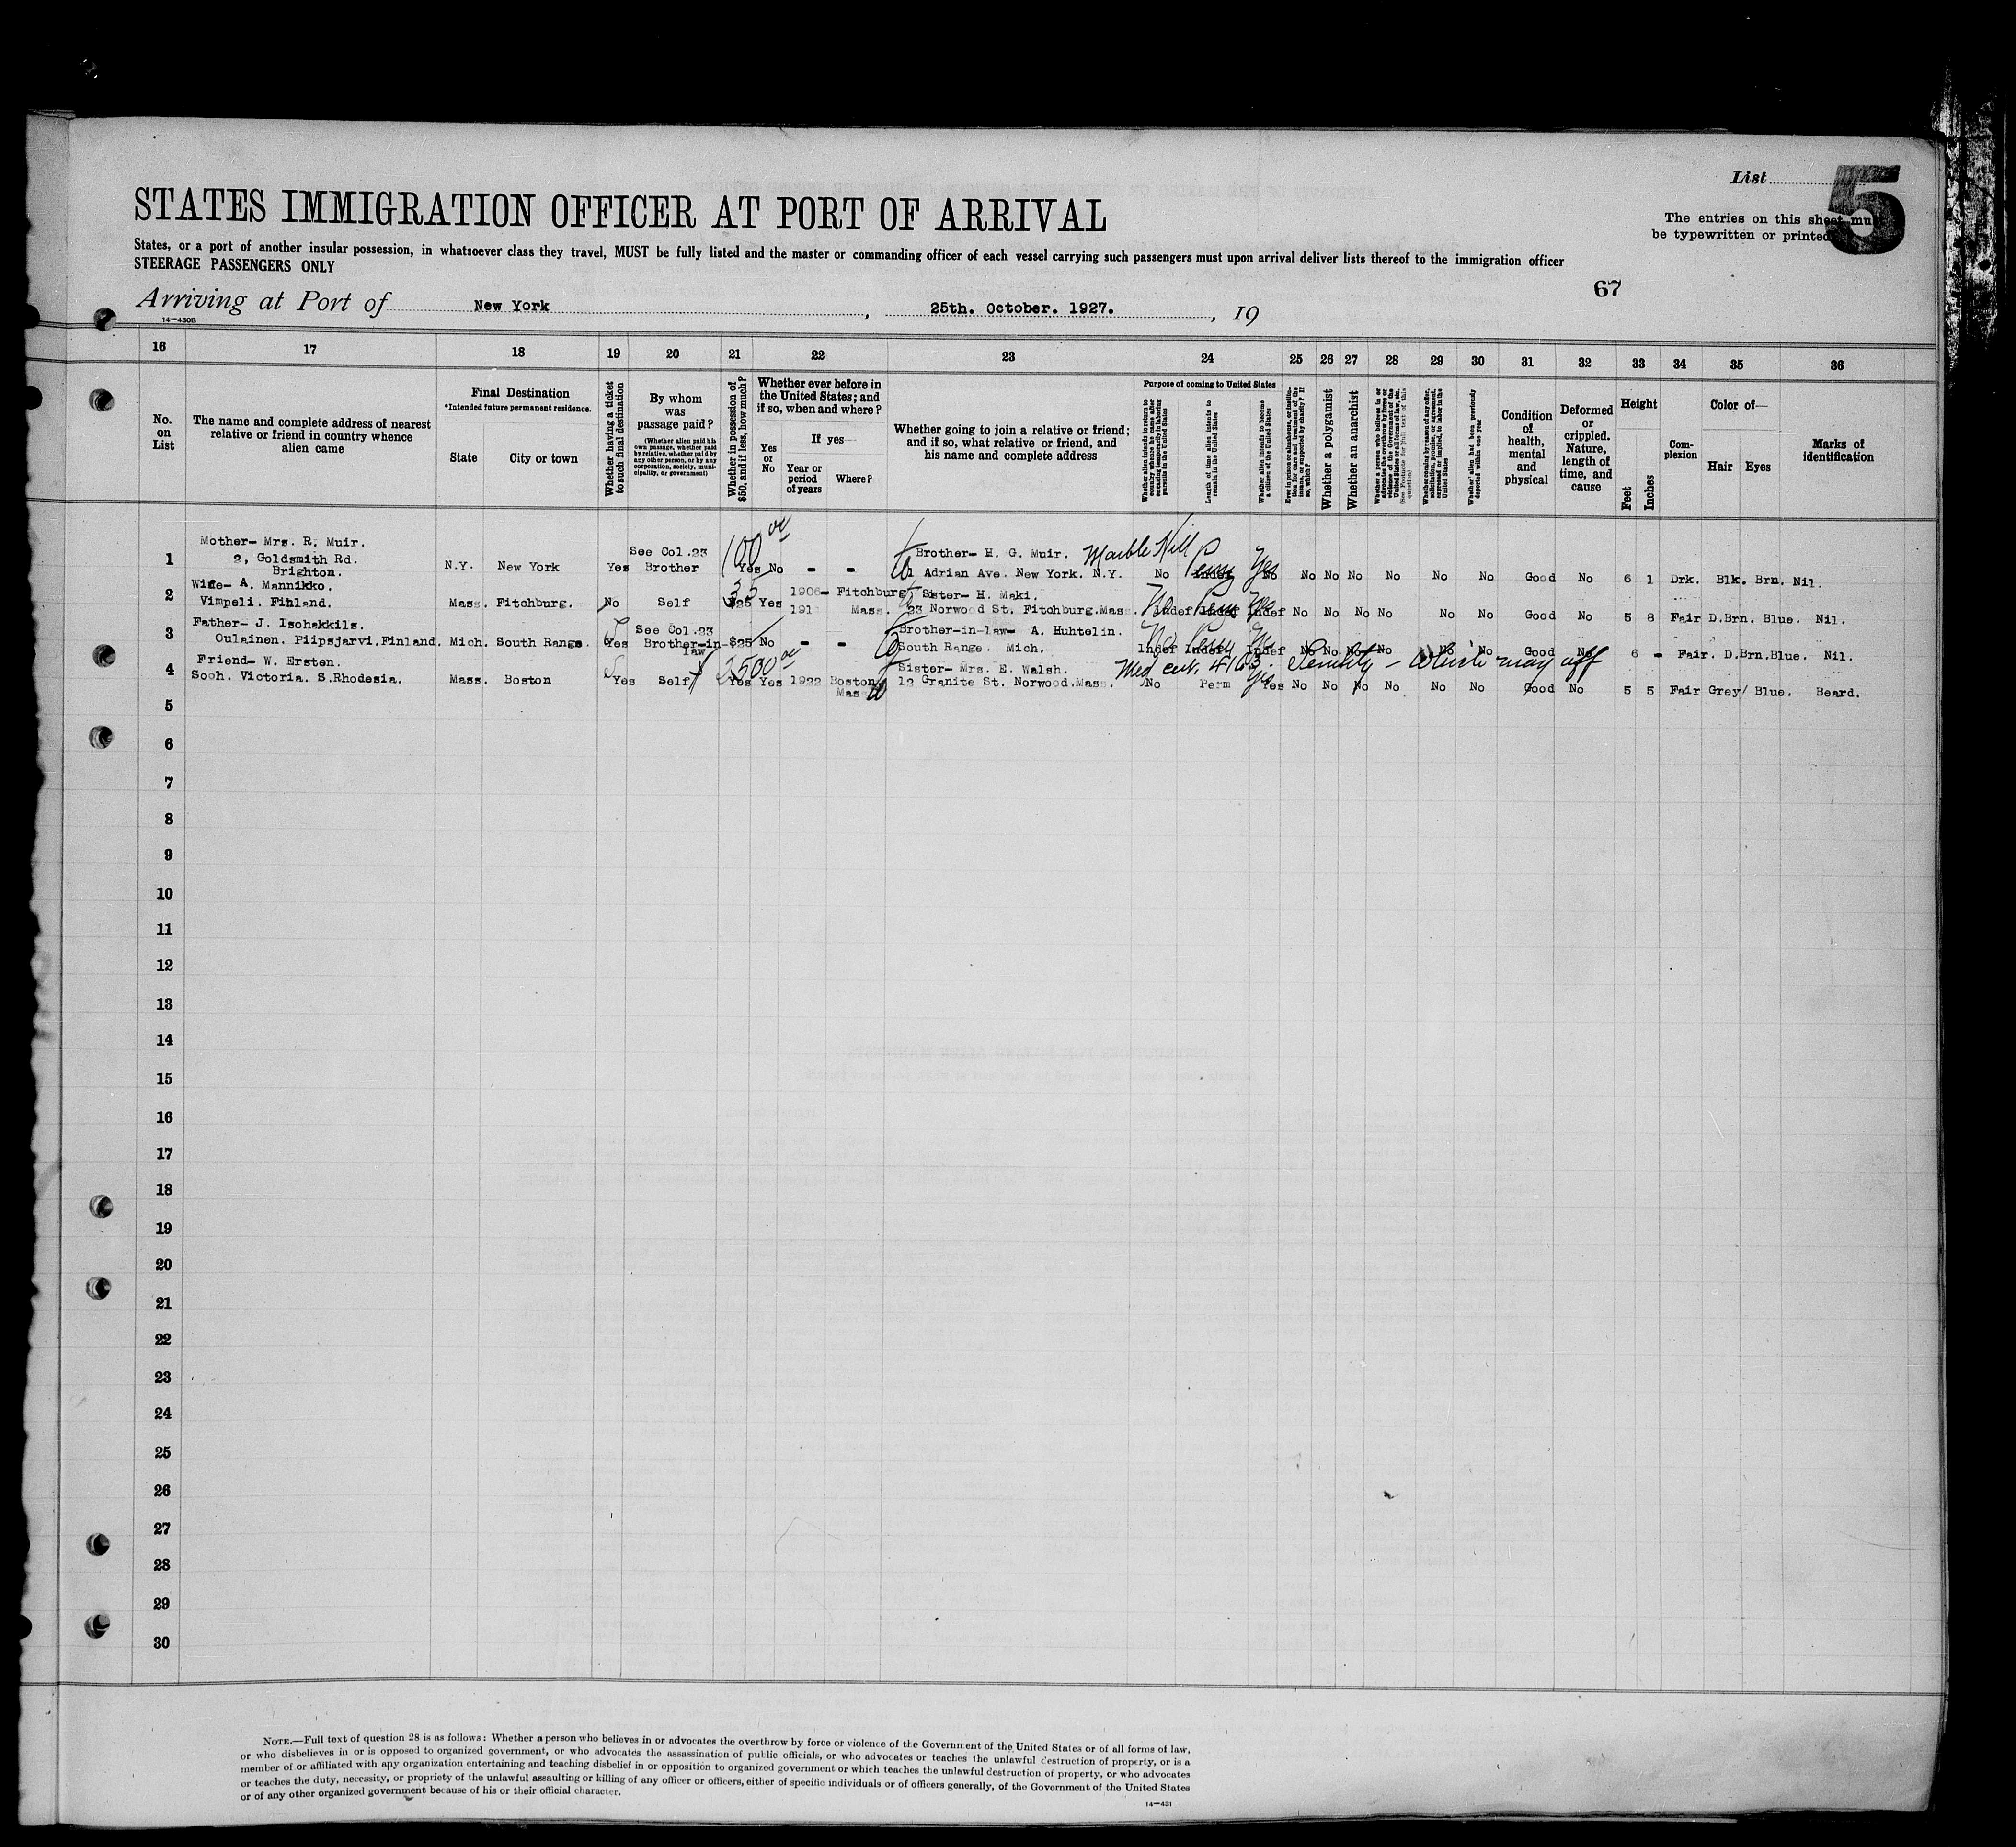 List
5
The entries on this sheet mu
be typewritten or printed
STATES IMMIGRATION OFFICER AT PORT OF ARRIVAL
States, or a port of another insular possession, in whatsoever class they travel, MUST be fully listed and the master or commanding officer of each vessel carrying such passengers must upon arrival deliver lists thereof to the immigration officer
STEERAGE PASSENGERS ONLY
67
Arriving at Port of New York, 25th. October. 1927., 19
14—430B
16 17 18 19 20 21 22 23 24 25 26 27 28 29 30 31 32 33 34 35 36
No. on List
The name and complete address of nearest relative or friend in country whence alien came
Final Destination
*Intended future permanent residence.
State
City or town
Whether having a ticket to such final destination
By whom was passage paid?
(Whether alien paid his own passage, whether paid by relative, whether paid by any other person, or by any corporation, society, municipality, or government)
Whether in possession of $50, and if less, how much?
Whether ever before in the United States; and if so, when and where?
Yes or No
If yes—
Year or period of years
Where?
Whether going to join a relative or friend; and if so, what relative or friend, and his name and complete address
Purpose of coming to United States
Whether alien intends to return to country whence he came after engaging temporarily in laboring pursuits in the United States
Length of time alien intends to remain in the United States
Whether alien intends to become a citizen of the United States
Whether a polygamist
Whether an anarchist
(See Footnote for full text of this question)
Whether coming by reason of any offer, solicitation, promise, or agreement, expressed or implied, to labor in the United States
Whether alien had been previously deported within one year
Condition of health, mental and physical
Deformed or crippled. Nature, length of time, and cause
Height
Feet
Inches
Complexion
Color of—
Hair
Eyes
Marks of identification
1 Mother- Mrs. R. Muir.
2, Goldsmith Rd.
Brighton.
N.Y. New York Yes See Col.23 Brother 100 00 Yes No - - Brother- H. G. Muir. Marble Hill
Adrian Ave. New York. N.Y. No Yes No No No No No No No Good No 6 1 Drk. Blk. Brn. Nil.
2 Wife- A. Mannikko.
Vimpeli. Finland.
Mass. Fitchburg. No Self 35 $25 Yes 1906- Fitchburg Mass. Sister- H. Maki.
23 Norwood St. Fitchburg.Mass. No Indef Indef No No No No No No Good No 5 8 Fair D.Brn. Blue. Nil.
3 Father- J. Isohakkils.
Oulainen. Piipsjarvi.Finland.
Mich. South Range. Yes See Col.23 Brother-in-law $25 No - - Brother-in-law- A. Huhtelin.
South Range. Mich. No Indef Indef Indef No No No No No No Good No 6 - Fair. D.Brn.Blue. Nil.
4 Friend- W. Ersten.
Sooh. Victoria. S.Rhodesia.
Mass. Boston Yes Self 2500 00 Yes Yes 1922 Boston Mass Sister- Mrs. E. Walsh.
12 Granite St. Norwood.Mass. Med cert. 4163. Senility - which may aff
No Perm Yes Yes No No No No No No Good No 5 5 Fair Grey/ Blue. Beard.
5
6
7
8
9
10
11
12
13
14
15
16
17
18
19
20
21
22
23
24
25
26
27
28
29
30
NOTE.—Full text of question 28 is as follows: Whether a person who believes in or advocates the overthrow by force or violence of the Government of the United States or of all forms of law,
or who disbelieves in or is opposed to organized government, or who advocates the assassination of public officials, or who advocates or teaches the unlawful destruction of property, or is a
member of or affiliated with any organization entertaining and teaching disbelief in or opposition to organized government or which teaches the unlawful destruction of property, or who advocates
or teaches the duty, necessity, or propriety of the unlawful assaulting or killing of any officer or officers, either of specific individuals or of officers generally, of the Government of the United States
or of any other organized government because of his or their official character.
14—431